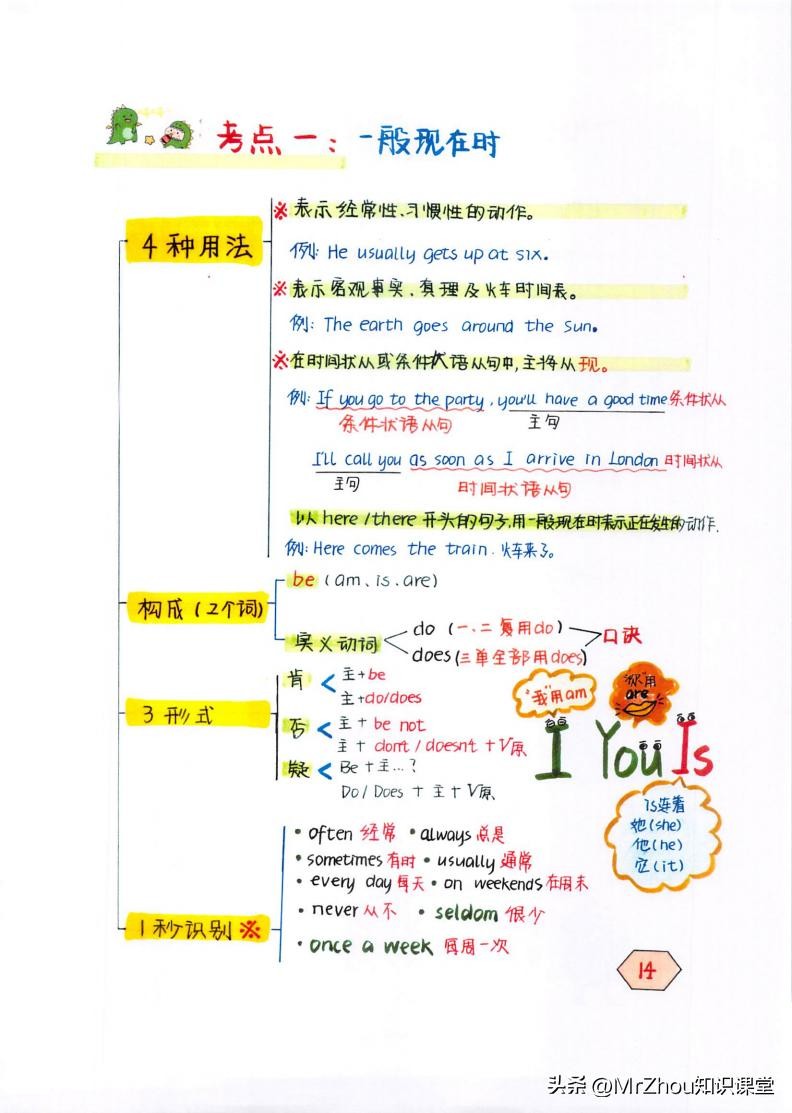 考点一：一般现在时
4种用法
※表示经常性、习惯性的动作。
例: He usually gets up at six.
※表示客观事实、真理及火车时间表。
例: The earth goes around the sun.
※在时间状从或条件状语从句中,主将从现。
例: If you go to the party, you'll have a good time 条件状从
条件状语从句 主句
I'll call you as soon as I arrive in London 时间状从
主句 时间状语从句
以here/there开头的句子,用一般现在时表示正在发生的动作.
例: Here comes the train. 火车来了。
构成(2个词)
be (am、is.are)
实义动词
do (一、二复用do)
does(三单全部用does)
口诀
3形式
肯 主+be
主+do/does
否 主+be not
主+don't/doesn't+V原
疑 Be+主…?
Do/Does+主+V原
"我"用am
"你"用are
I You Is
Is连着
她(she)
他(he)
它(it)
1秒识别※
•often 经常 •always 总是
•sometimes 有时 •usually 通常
•every day 每天 •on weekends 在周末
•never 从不 •seldom 很少
•once a week 每周一次
14
头条@MrZhou知识课堂